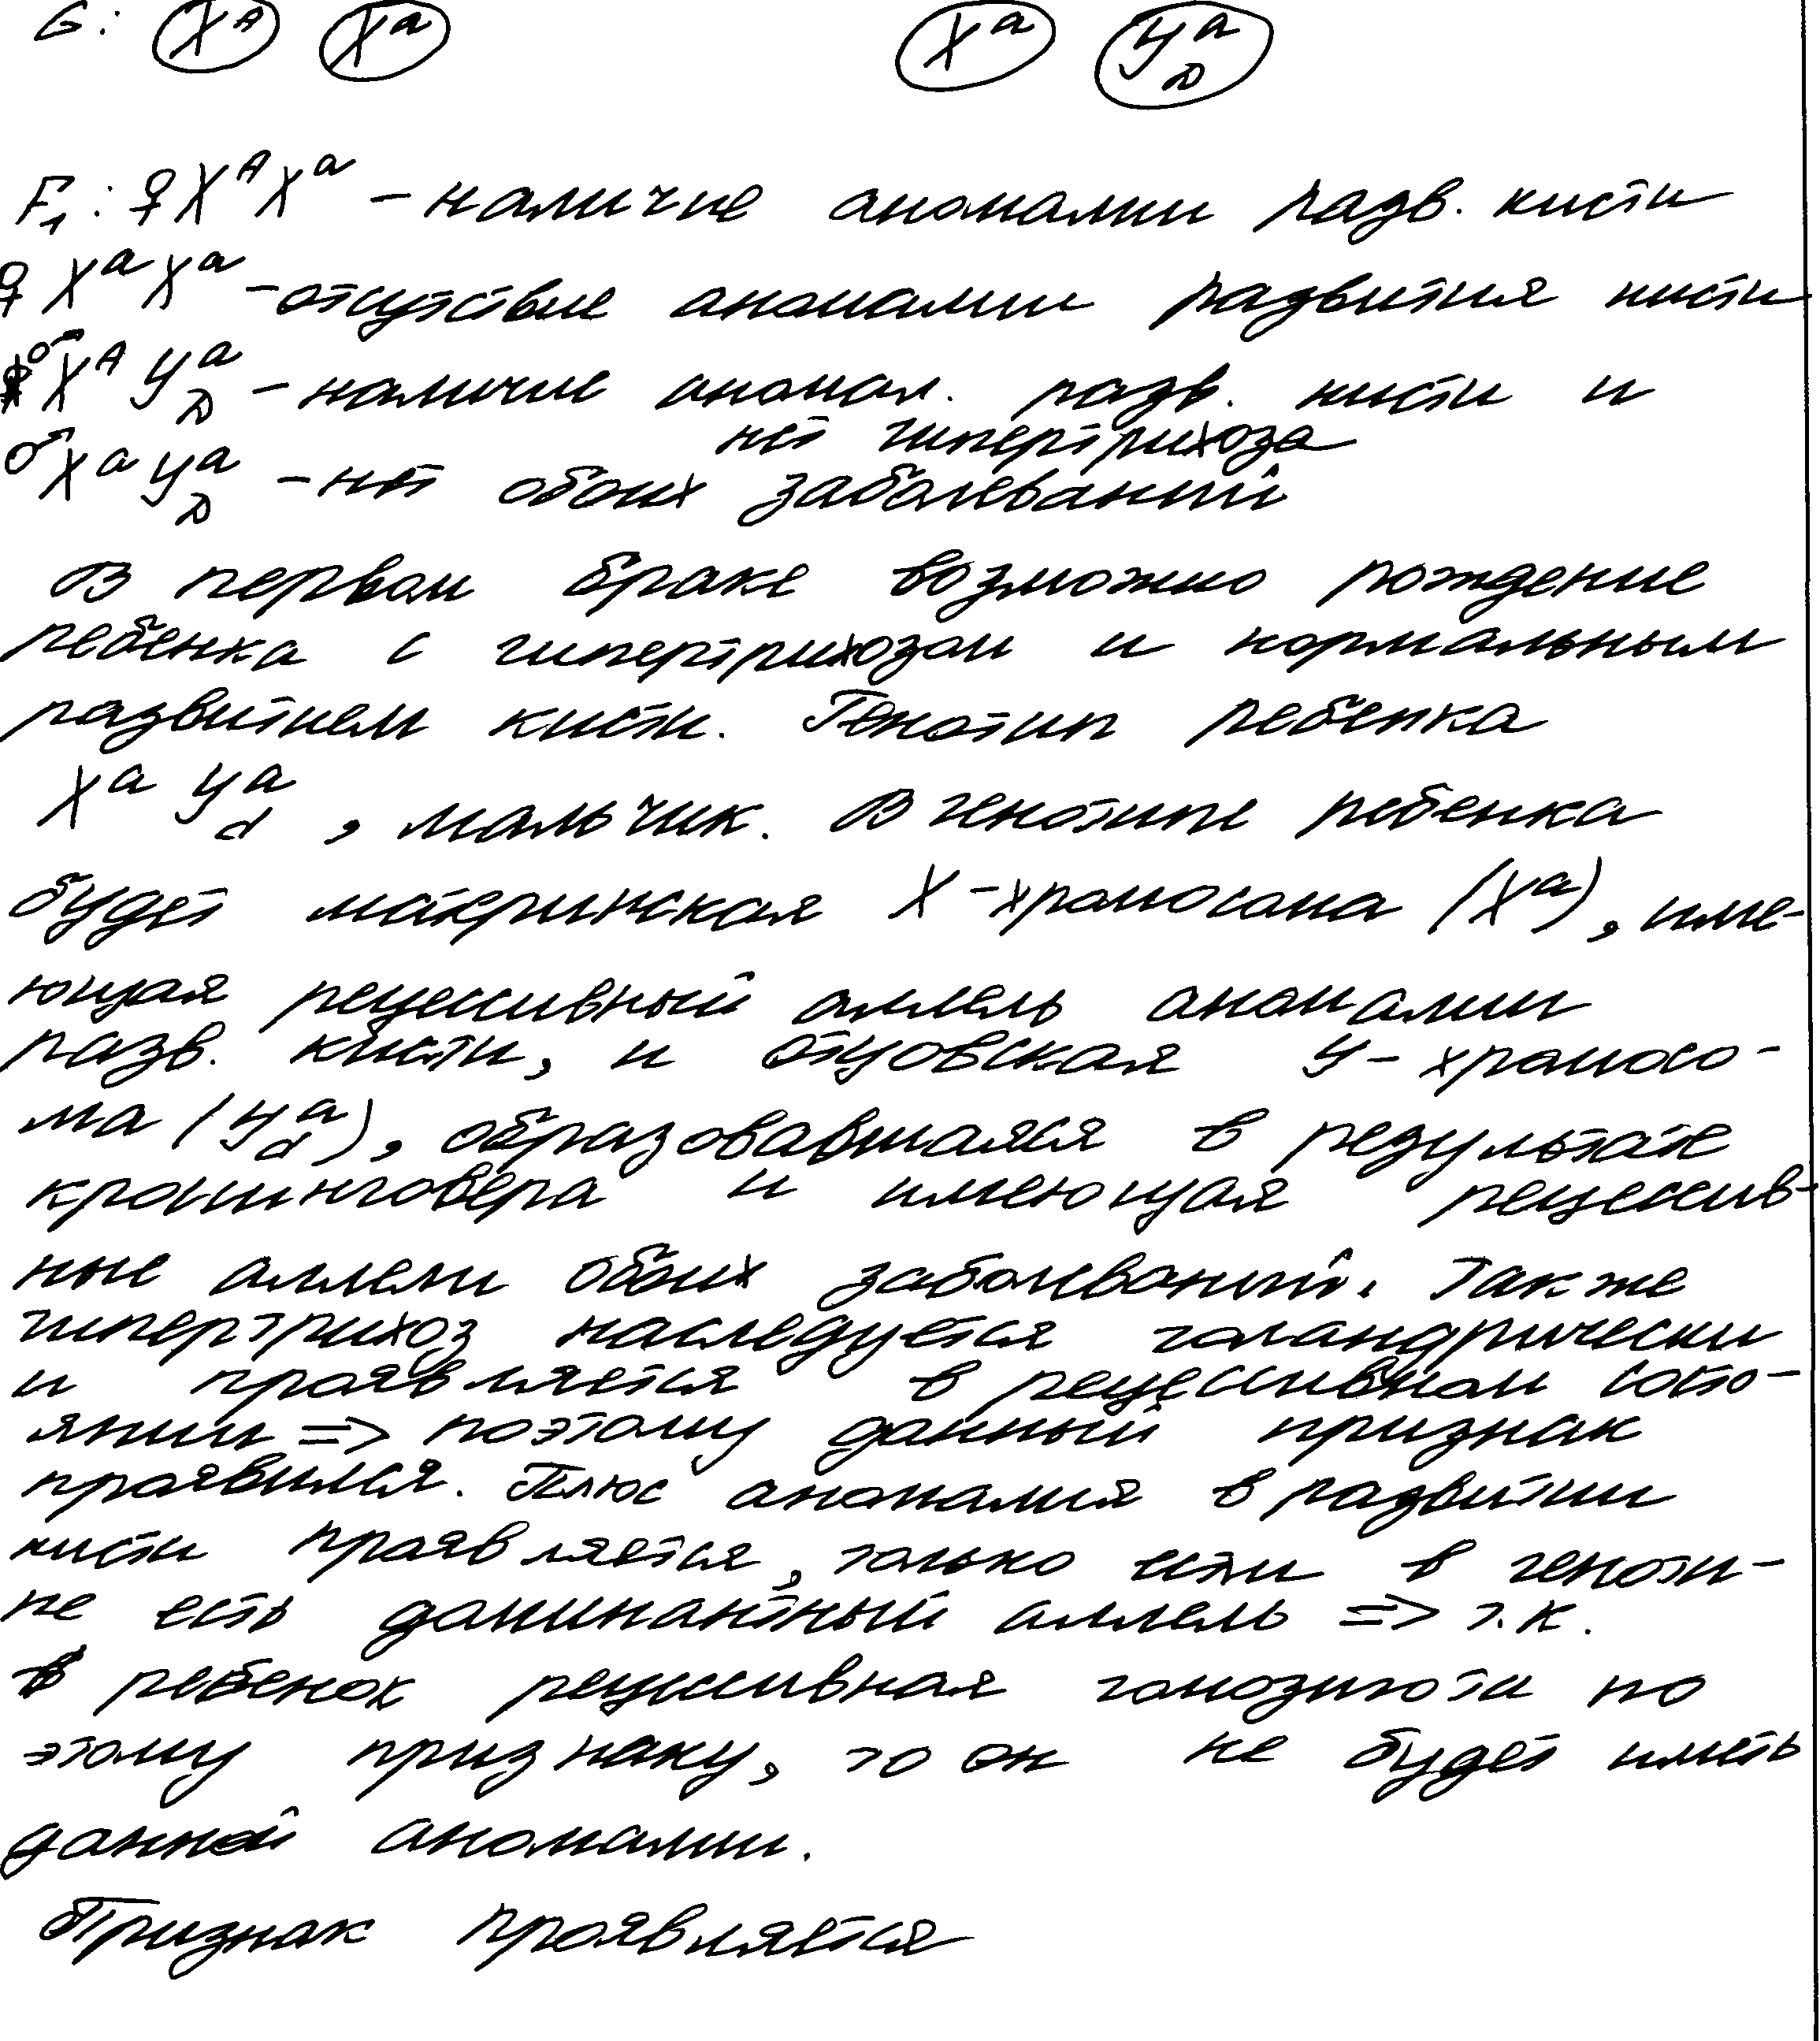 G: X^A X^a X^a У^a_D
F₁: ♀ X^A X^a – наличие аномалии разв. кисти
♀ X^a X^a – отсутствие аномалии развития кисти
♂ X^A У^a_D – наличие аномал. разв. кисти и
нет гипертрихоза
♂ X^a У^a_D – нет обоих заболеваний
В первом браке возможно рождение
ребенка с гипертрихозом и нормальным
развитием кисти. Генотип ребенка
X^a У^a_d, мальчик. В генотипе ребенка
будет материнская X-хромосома (X^a), име-
ющая рецессивный аллель аномалии
разв. кисти, и отцовская У-хромосо-
ма (У^a_d), образовавшаяся в результате
кроссинговера и имеющая рецессив-
ные аллели обоих заболеваний. Также
гипертрихоз наследуется голандрически
и проявляется в рецессивном состо-
янии => поэтому данный признак
проявился. Плюс аномалия в развитии
кисти проявляется, только если в геноти-
пе есть доминантный аллель => т.к.
ребенок рецессивная гомозигота по
этому признаку, то он не будет иметь
данной аномалии.
Признак проявляется